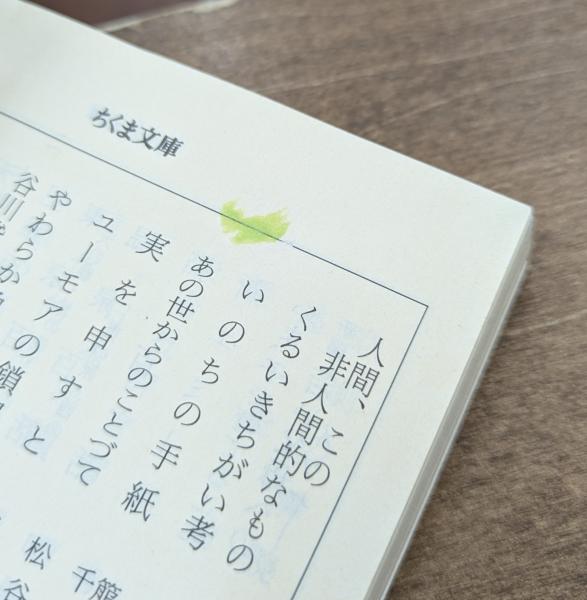 ちくま文庫
人間、この
非人間的なもの
くるいきちがい考
いのちの手紙
あの世からのことづて
実を申すと
ユーモアの鎖
やわらか
谷川
千
松谷